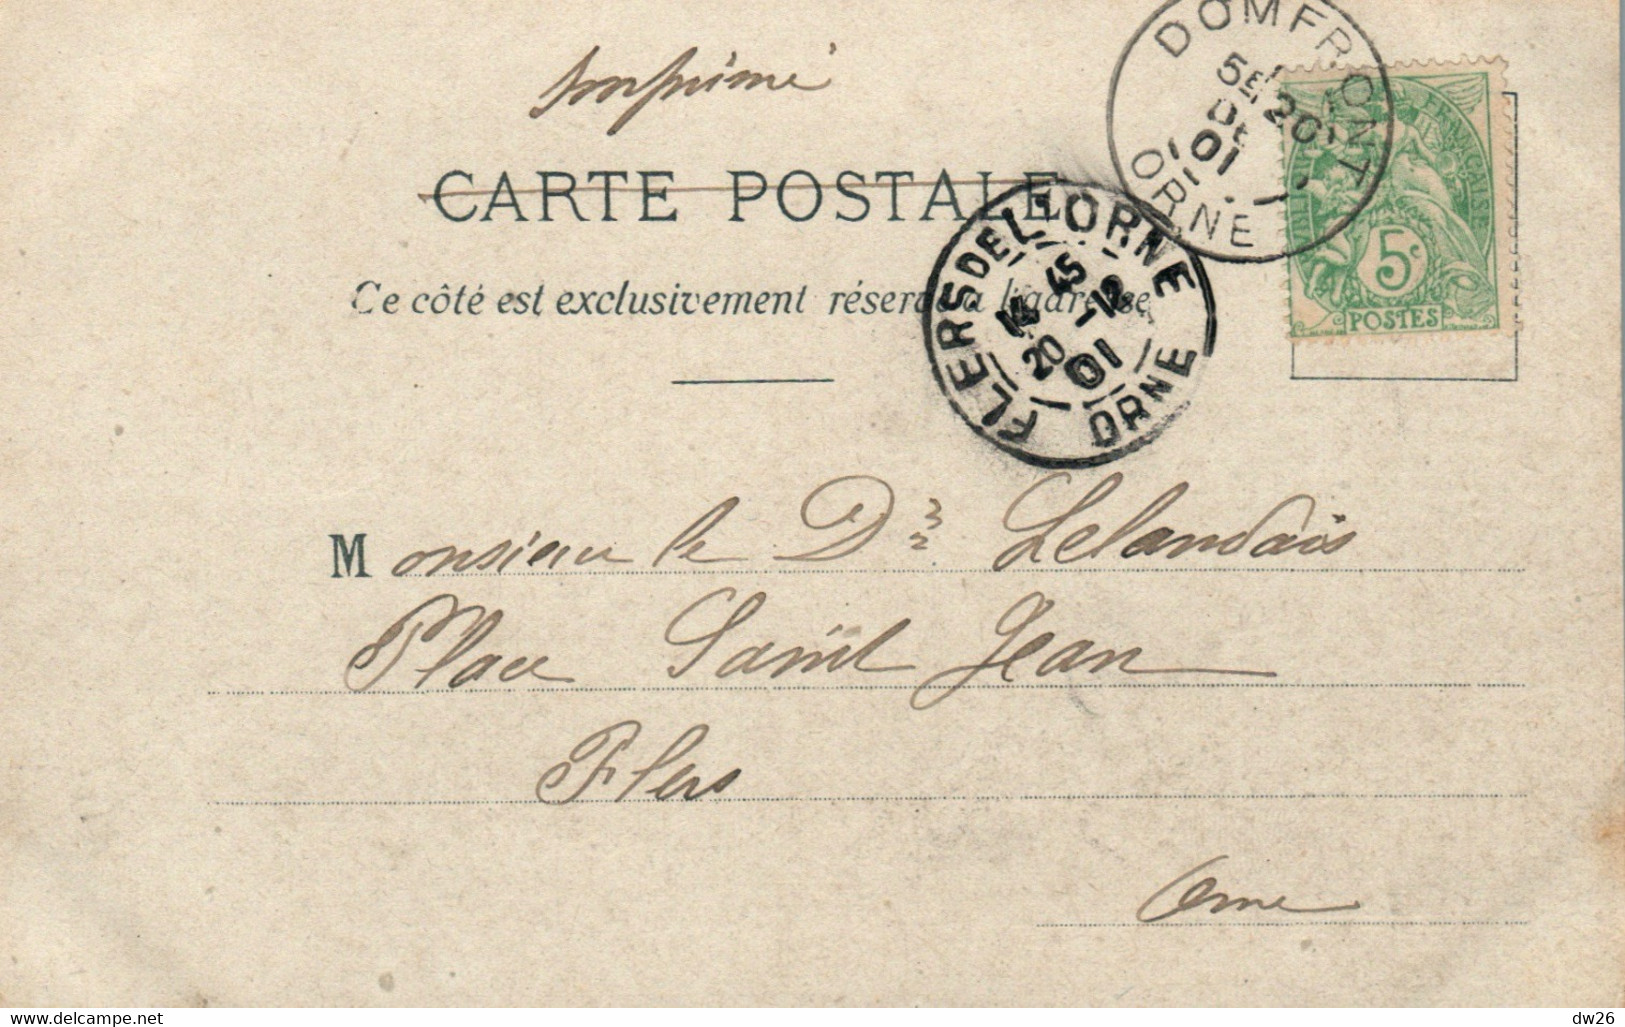 Imprimé
CARTE POSTALE
Ce côté est exclusivement réservé à l'adresse
DOMFRONT
5E 20
DE
01
ORNE
FLERS DE L'ORNE
14 45
20 12
01
ORNE
RÉPUBLIQUE FRANÇAISE
5c
POSTES
Monsieur le Dr Lelandais
Place Saint Jean
Flers
Orne
delcampe.net
dw26